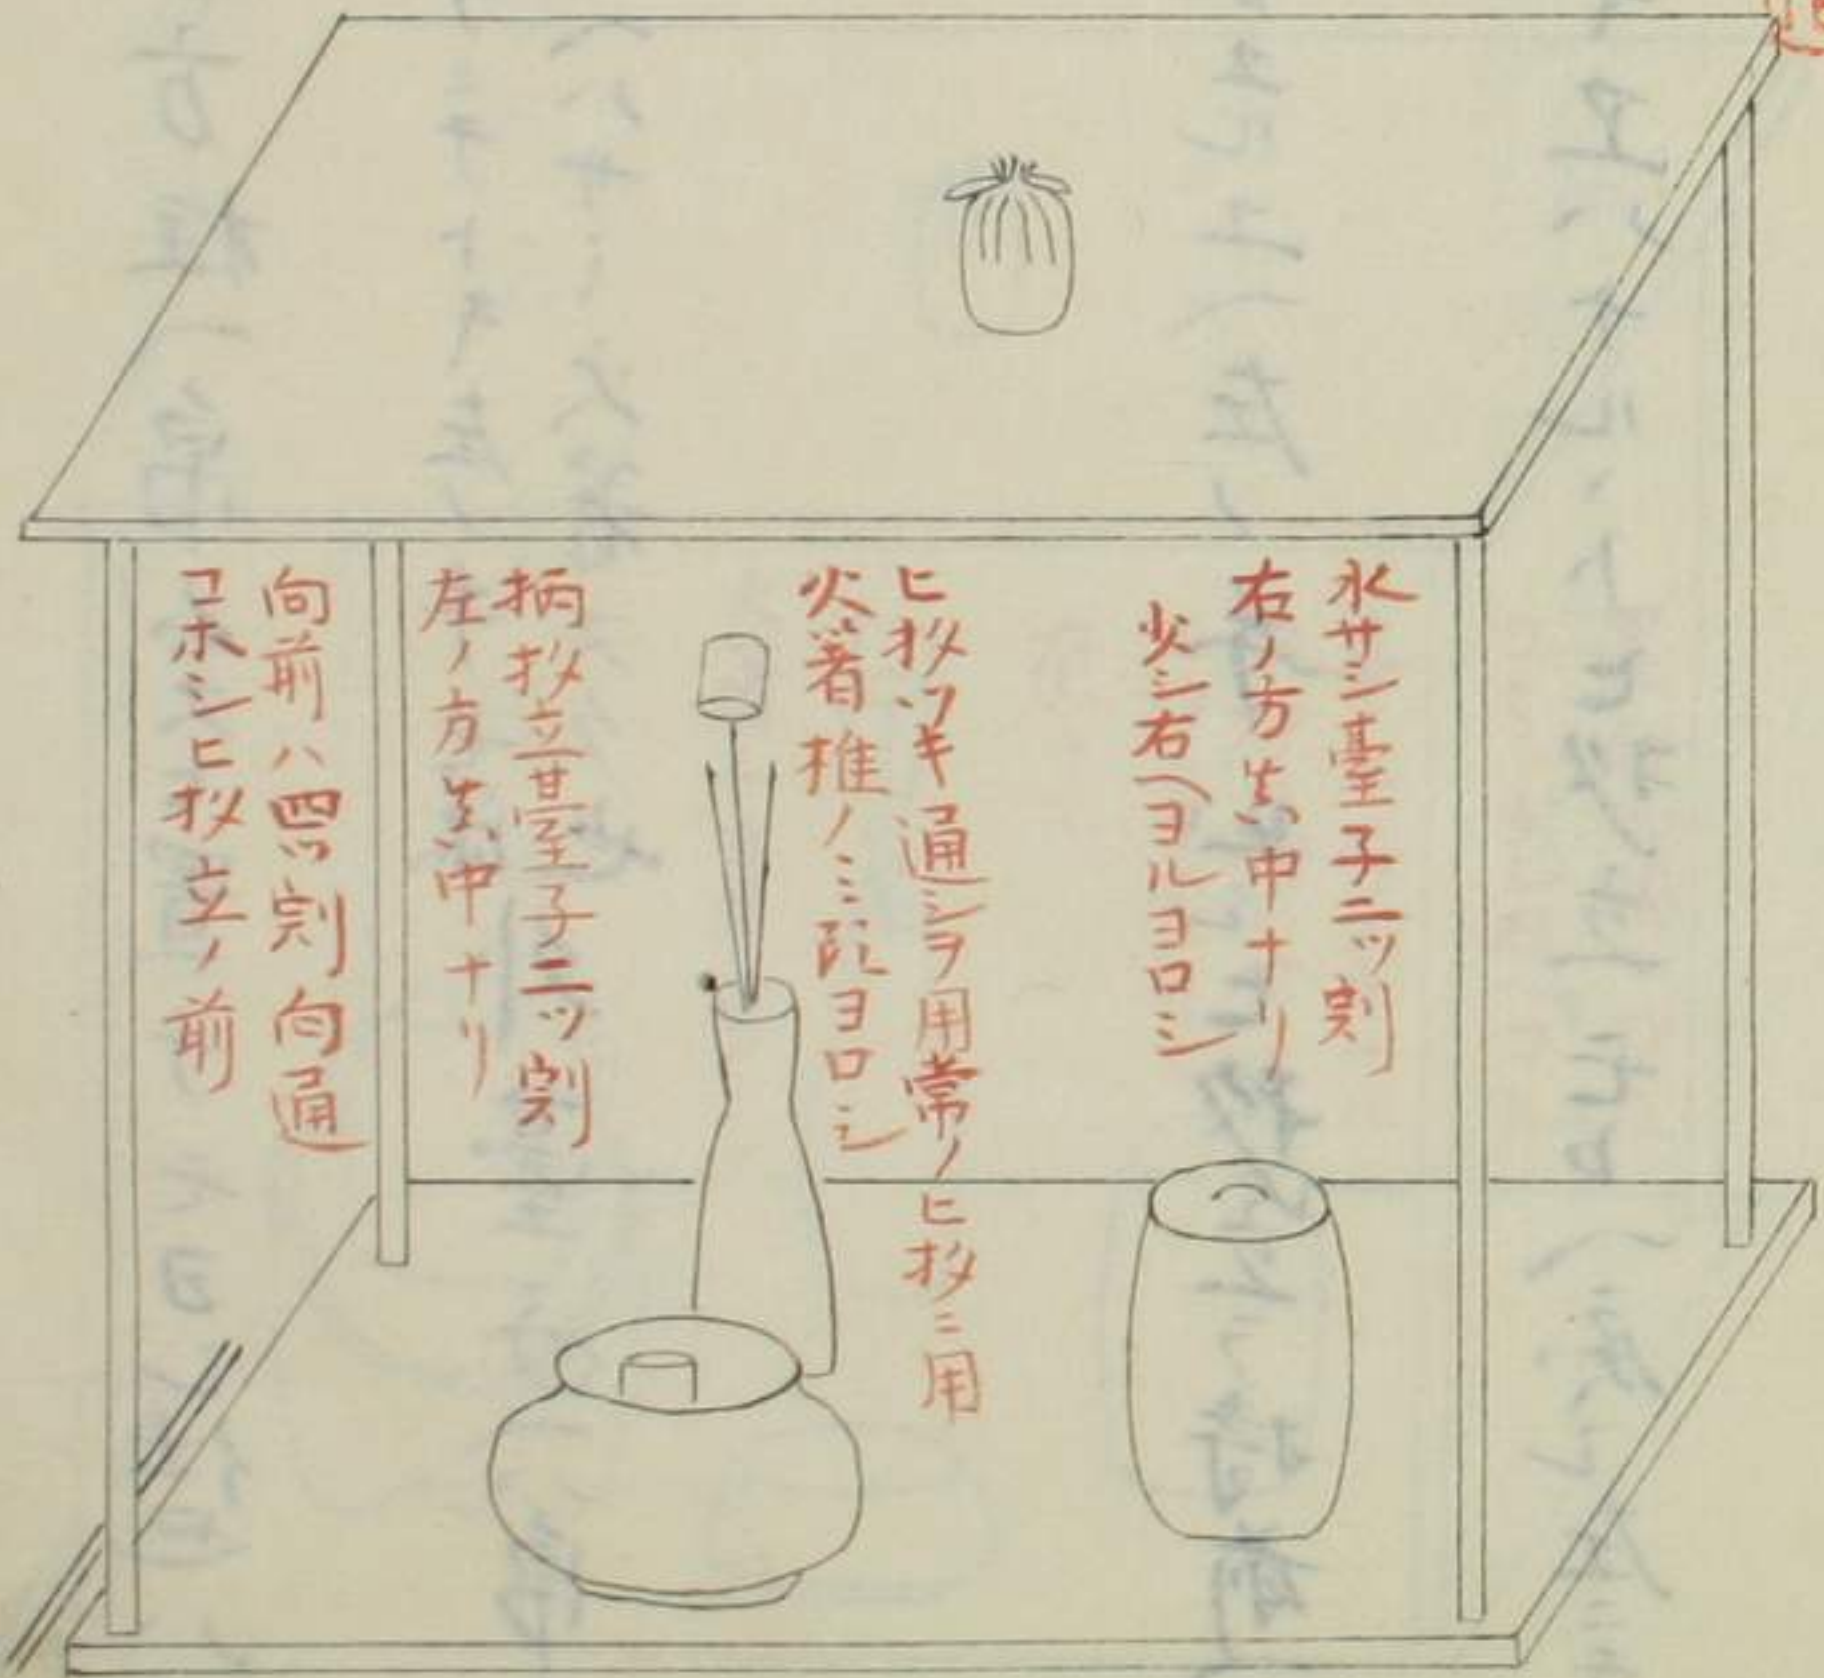 水サシ臺子二ッ割
右ノ方真中ナリ
少シ右ヘヨルヨロシ
ヒ抄ツキ通シヲ用常ノヒ抄ニ用
火箸推ノミ頭ヨロシ
柄抄立臺子二ッ割
左ノ方真中ナリ
向前ハ四ッ割向通
コホシヒ抄立ノ前